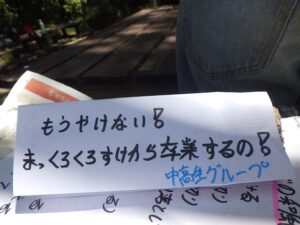 もうやけない!
まっくろくろすけから卒業するの!
中高生グループ